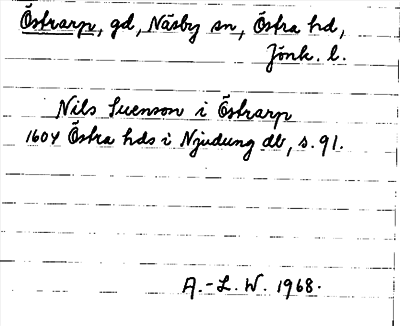 Östrarp, gd, Näsby sn, Östra hd,
Jönk. l.
Nils Suenson i Östrarp
1604 Östra hds i Njudung db, s. 91.
A.-L. W. 1968.